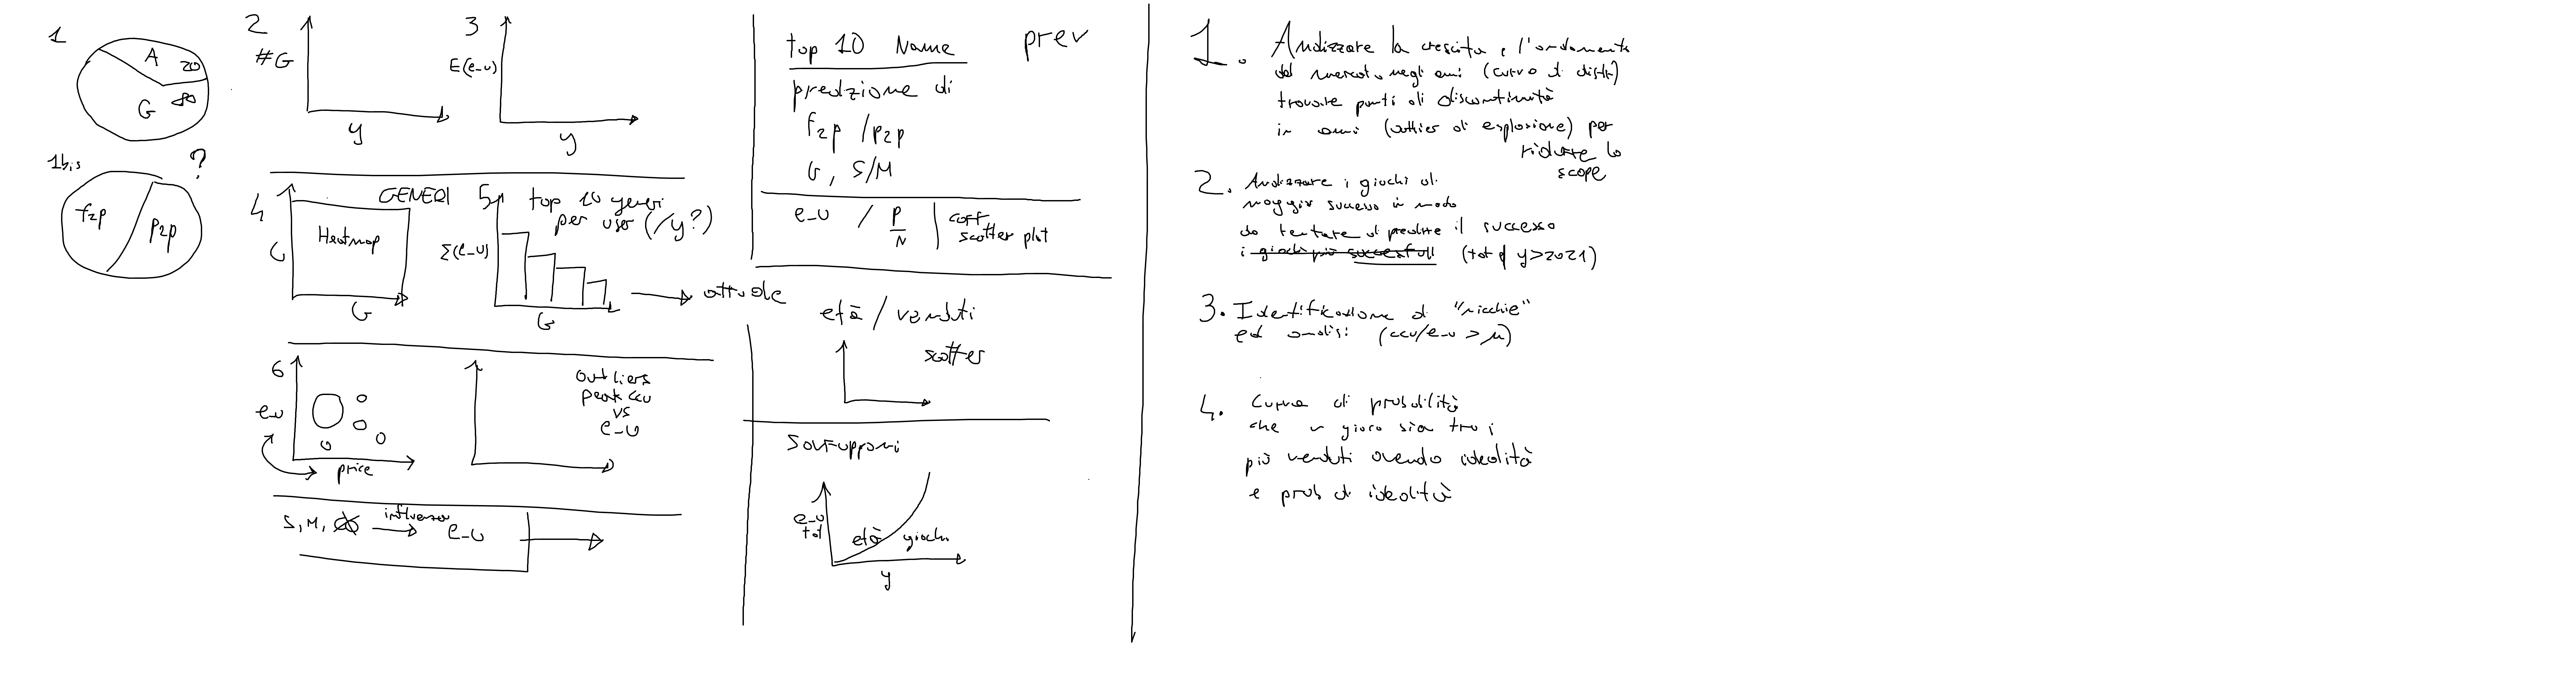 1
A 20
G 80
1bis
?
f2p
p2p
2
#G
y
3
E(e_u)
y
4
GENERI
Heatmap
G
G
5
top 10 generi
per user (/y?)
Σ(e_u)
G
attuale
6
e_u
price
Outliers
peak ccu
vs
e_u
S, M,
influenza
e_u
top 10 Name
prev
predizione di
f2p / p2p
G, S/M
e_u / P/N
scatter plot
età / venduti
scatter
Sottogeneri
e_u
tot
età giochi
y
1. Analizzare la crescita e l'andamento
del mercato negli anni (curva di distr)
trovare punti di discontinuità
in anni (outlier di esplosione) per
ridurre lo
scope
2. Analizzare i giochi di
maggior successo in modo
da tentare di predire il successo
i giochi più successfull (tot di y>2021)
3. Identificazione di "nicchie"
ed analisi (ccu/e_u > μ)
4. Curva di probabilità
che un gioco sia tra i
più venduti avendo idealità
e prob di idealità